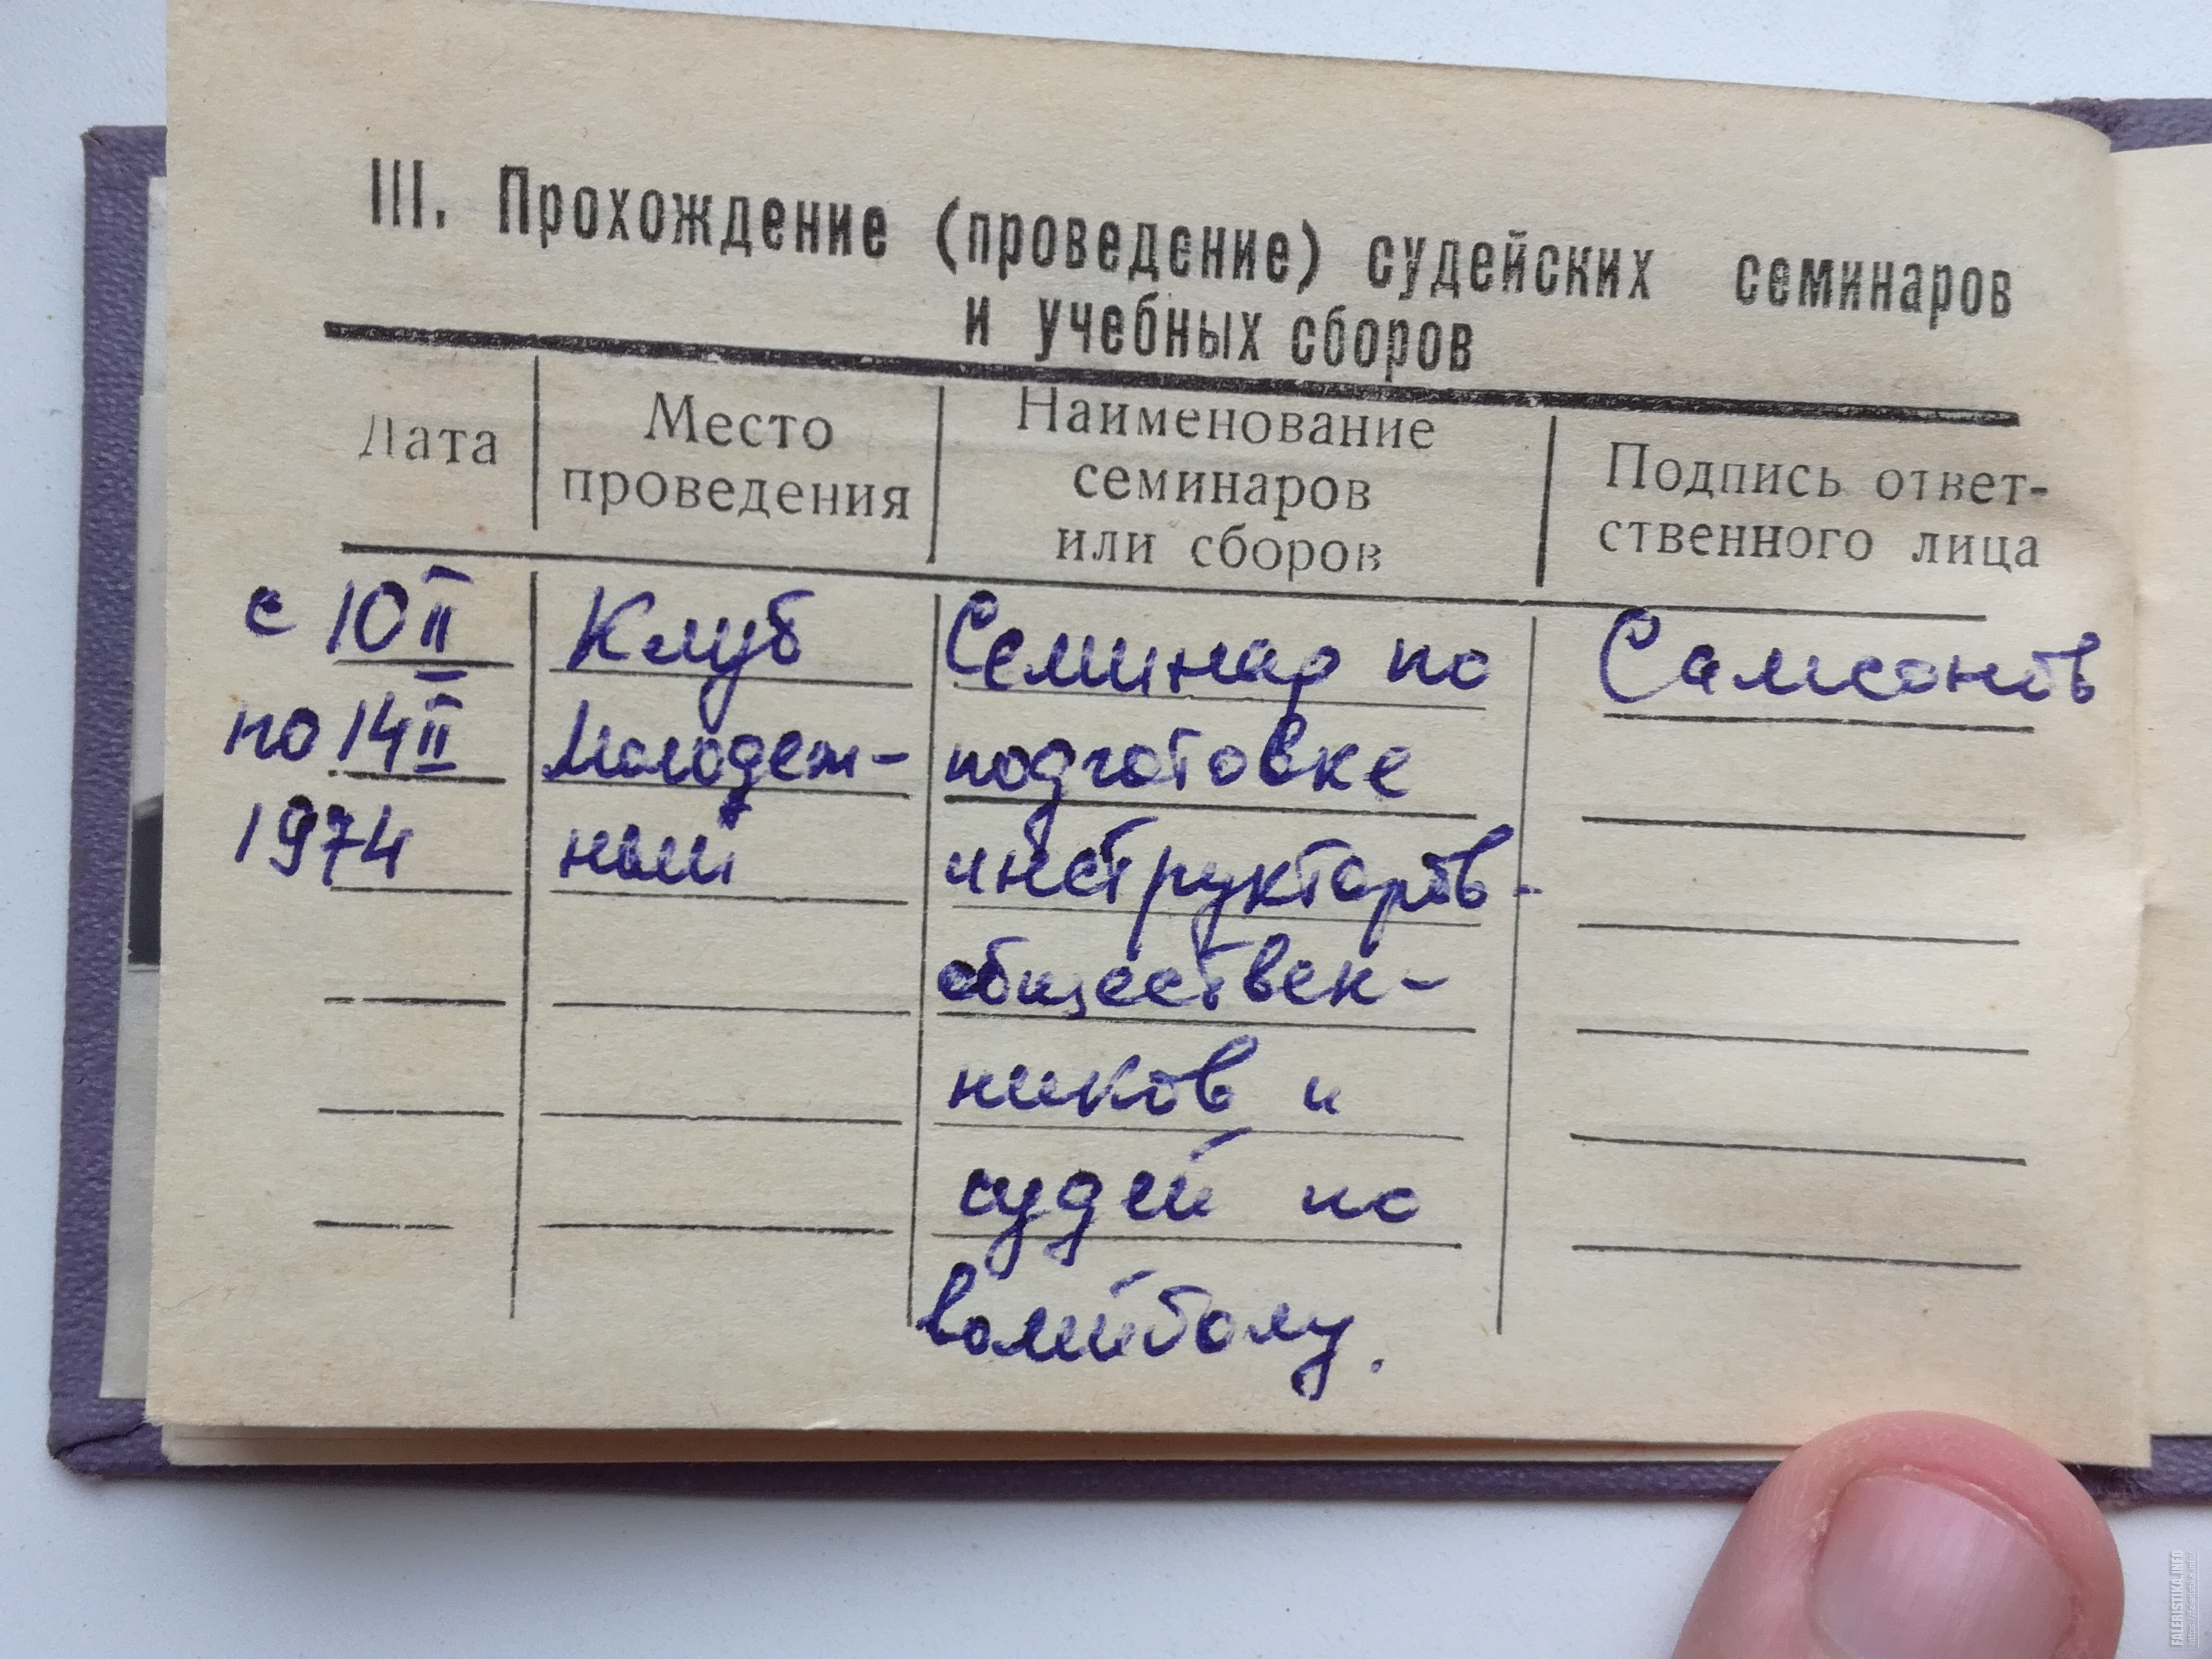 III. Прохождение (проведение) судейских семинаров
и учебных сборов
Дата
Место
проведения
Наименование
семинаров
или сборов
Подпись ответ-
ственного лица
с 10 II
по 14 II
1974
Клуб
Молодеж-
ный
Семинар по
подготовке
инструкторов-
обществен-
ников и
судей по
волейболу.
Самсонов
FALERISTIKA.INFO
https://faleristika.info